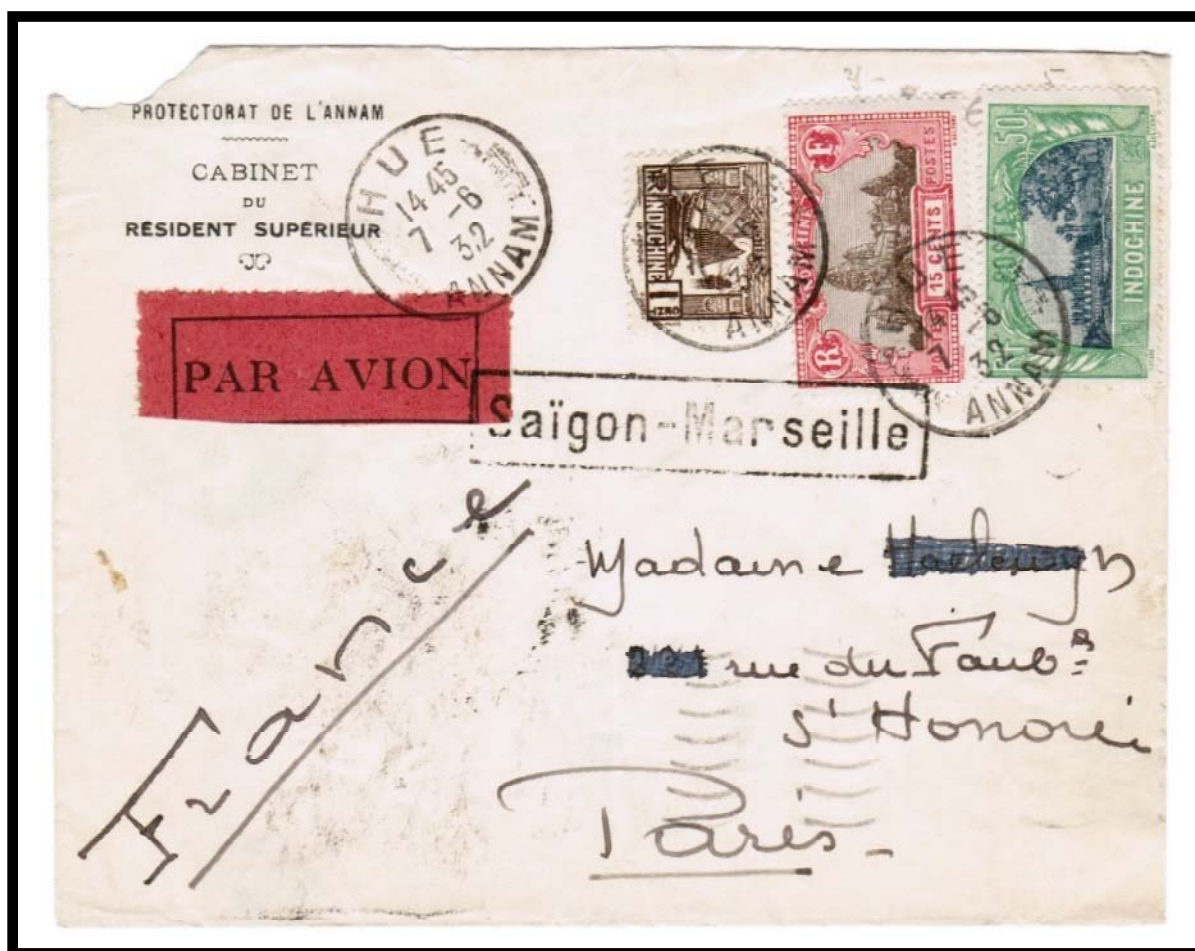 PROTECTORAT DE L'ANNAM
CABINET
DU
RÉSIDENT SUPÉRIEUR
HUE
14 45
7 -6
32
ANNAM
1
INDOCHINE
ANNAM
R F
15 CENTS
POSTES
50
POSTES
INDOCHINE
7 32
ANNAM
PAR AVION
Saïgon-Marseille
France
Madame
rue du Faubg
St Honoré
Paris